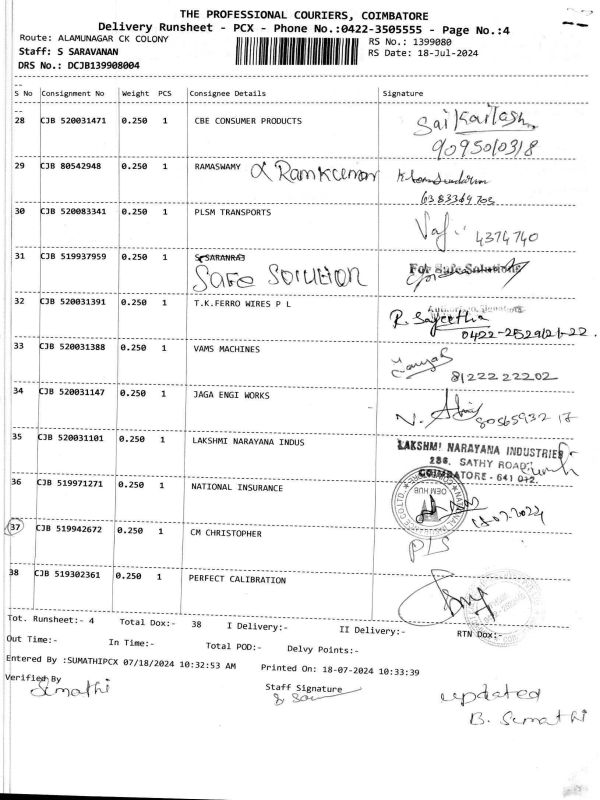 THE PROFESSIONAL COURIERS, COIMBATORE
Delivery Runsheet - PCX - Phone No.:0422-3505555 - Page No.:4
Route: ALAMUNAGAR CK COLONY
RS No.: 1399080
Staff: S SARAVANAN
RS Date: 18-Jul-2024
DRS No.: DCJB139908004
S No Consignment No Weight PCS Consignee Details Signature
28 CJB 520031471 0.250 1 CBE CONSUMER PRODUCTS Saikailash
9095010318
29 CJB 80542948 0.250 1 RAMASWAMY Ramkumar
6383369703
30 CJB 520083341 0.250 1 PLSM TRANSPORTS
4374740
31 CJB 519937959 0.250 1 S SARANRAJ For Safe Solutions
Safe Solution
32 CJB 520031391 0.250 1 T.K.FERRO WIRES P L R. Sajeetha
0422-2529121-22.
33 CJB 520031388 0.250 1 VAMS MACHINES
8122222202
34 CJB 520031147 0.250 1 JAGA ENGI WORKS
35 CJB 520031101 0.250 1 LAKSHMI NARAYANA INDUS LAKSHMI NARAYANA INDUSTRIES
286, SATHY ROAD,
COIMBATORE - 641 012.
36 CJB 519971271 0.250 1 NATIONAL INSURANCE OEM HUB
18.07.2024
37 CJB 519942672 0.250 1 CM CHRISTOPHER
38 CJB 519302361 0.250 1 PERFECT CALIBRATION
Tot. Runsheet:- 4 Total Dox:- 38 I Delivery:- II Delivery:- RTN Dox:-
Out Time:- In Time:- Total POD:- Delvy Points:-
Entered By :SUMATHIPCX 07/18/2024 10:32:53 AM Printed On: 18-07-2024 10:33:39
Verified By Staff Signature updated
Sumathi B. Sumathi